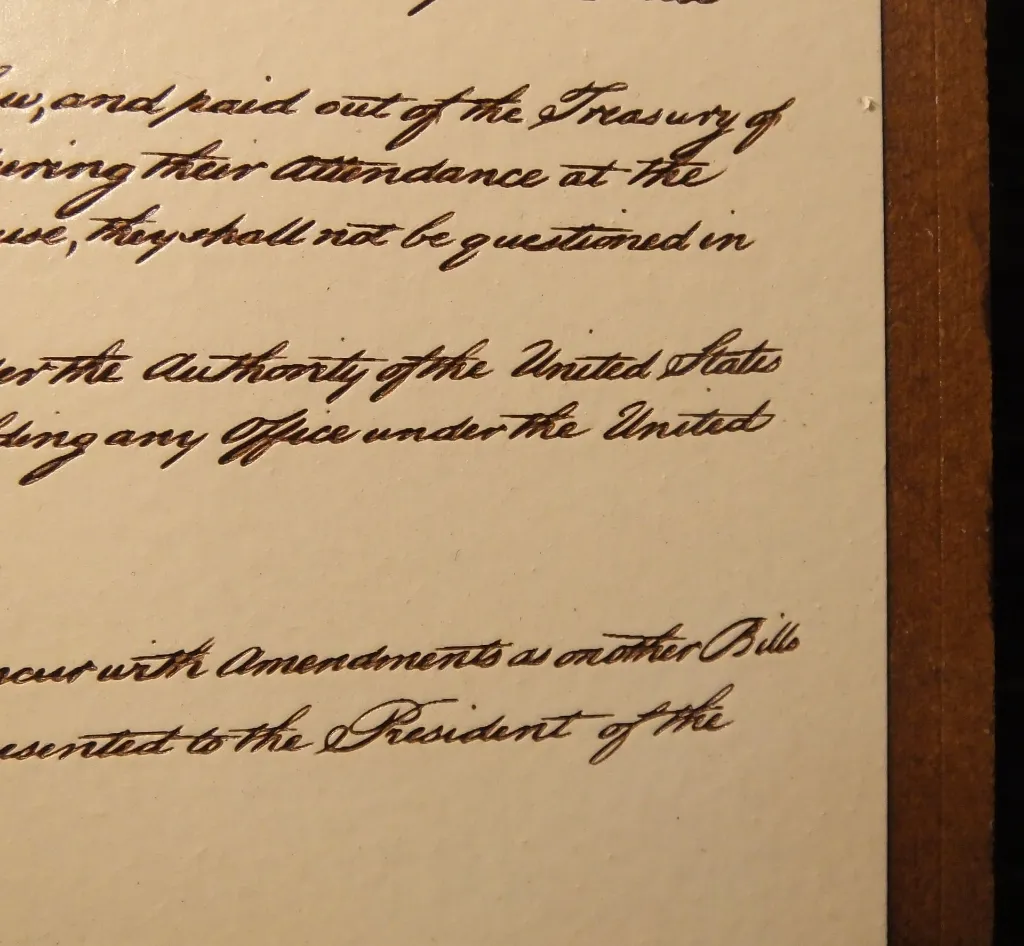 w, and paid out of the Treasury of
uring their Attendance at the
use, they shall not be questioned in
er the Authority of the United States
ding any Office under the United
ncur with Amendments as on other Bills
esented to the President of the